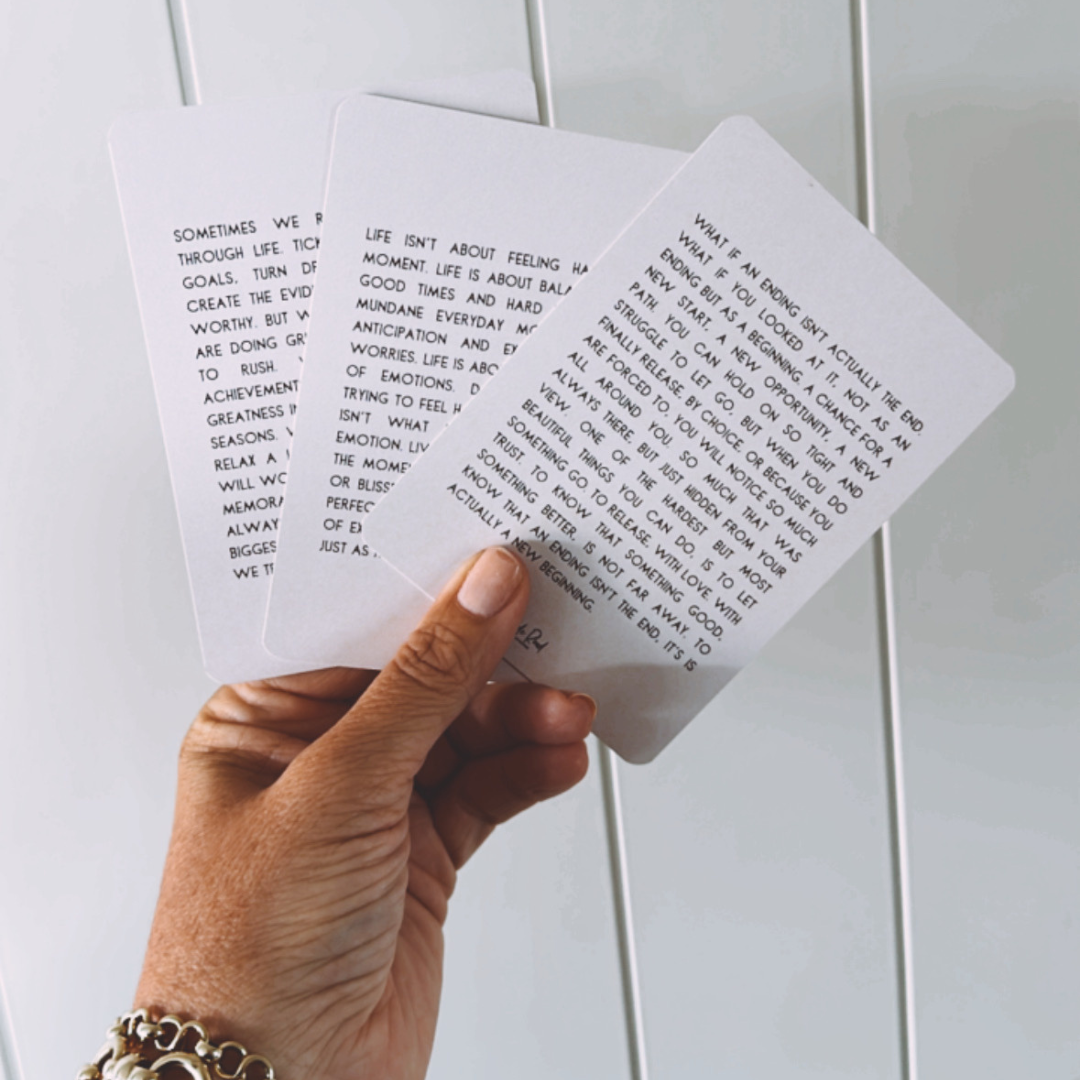 SOMETIMES WE
THROUGH LIFE.
GOALS, TURN
CREATE THE
WORTHY. BUT
ARE DOING
TO RUSH.
ACHIEVEMENT
GREATNESS
SEASONS.
RELAX A
WILL
ALWAY
WE
LIFE ISN'T ABOUT FEELING
MOMENT. LIFE IS ABOUT
GOOD TIMES AND HARD
MUNDANE EVERYDAY
ANTICIPATION AND
WORRIES. LIFE IS
OF EMOTIONS.
TRYING TO FEEL
ISN'T WHAT
EMOTION.
THE
OR
OF
JUST AS
WHAT IF AN ENDING ISN'T ACTUALLY THE END.
WHAT IF YOU LOOKED AT IT, NOT AS AN
ENDING BUT AS A BEGINNING. A CHANCE FOR A
NEW START. A NEW OPPORTUNITY. A NEW
PATH. YOU CAN HOLD ON SO TIGHT AND
STRUGGLE TO LET GO, BUT WHEN YOU DO
FINALLY RELEASE, BY CHOICE, OR BECAUSE YOU
ARE FORCED TO, YOU WILL NOTICE SO MUCH
ALL AROUND YOU. SO MUCH THAT WAS
ALWAYS THERE, BUT JUST HIDDEN FROM YOUR
VIEW. ONE OF THE HARDEST BUT MOST
BEAUTIFUL THINGS YOU CAN DO, IS TO LET
SOMETHING GO. TO RELEASE. WITH LOVE. WITH
TRUST. TO KNOW THAT SOMETHING GOOD,
SOMETHING BETTER, IS NOT FAR AWAY. TO
KNOW THAT AN ENDING ISN'T THE END, IT'S IS
ACTUALLY A NEW BEGINNING.